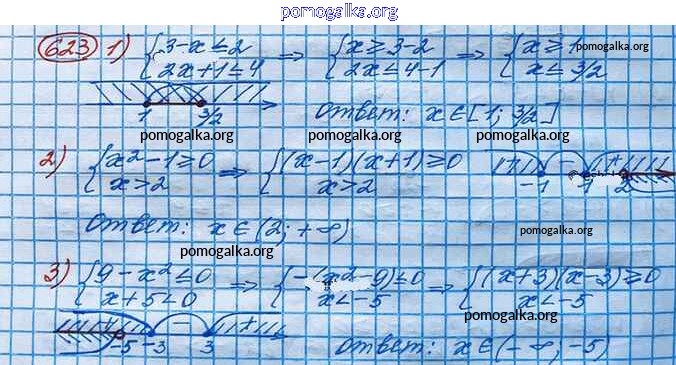 pomogalka.org
623 1) {3-x≤2 2x+1≤4 ⇒ {x≥3-2 2x≤4-1 ⇒ {x≥1 x≤3/2
pomogalka.org
1 3/2 Ответ: x∈[1; 3/2]
pomogalka.org pomogalka.org pomogalka.org
2) {x²-1≥0 x>2 ⇒ {(x-1)(x+1)≥0 x>2 + - + -1 1 2
Ответ: x∈(2; +∞)
pomogalka.org
pomogalka.org
3) {9-x²≤0 x+5<0 ⇒ {-(x²-9)≤0 x<-5 ⇒ {(x+3)(x-3)≥0 x<-5
pomogalka.org
+ - + -5 -3 3 Ответ: x∈(-∞; -5)
pomogalka.org